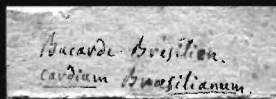 Bucarde Brésilien.
Cardium Brasilianum.